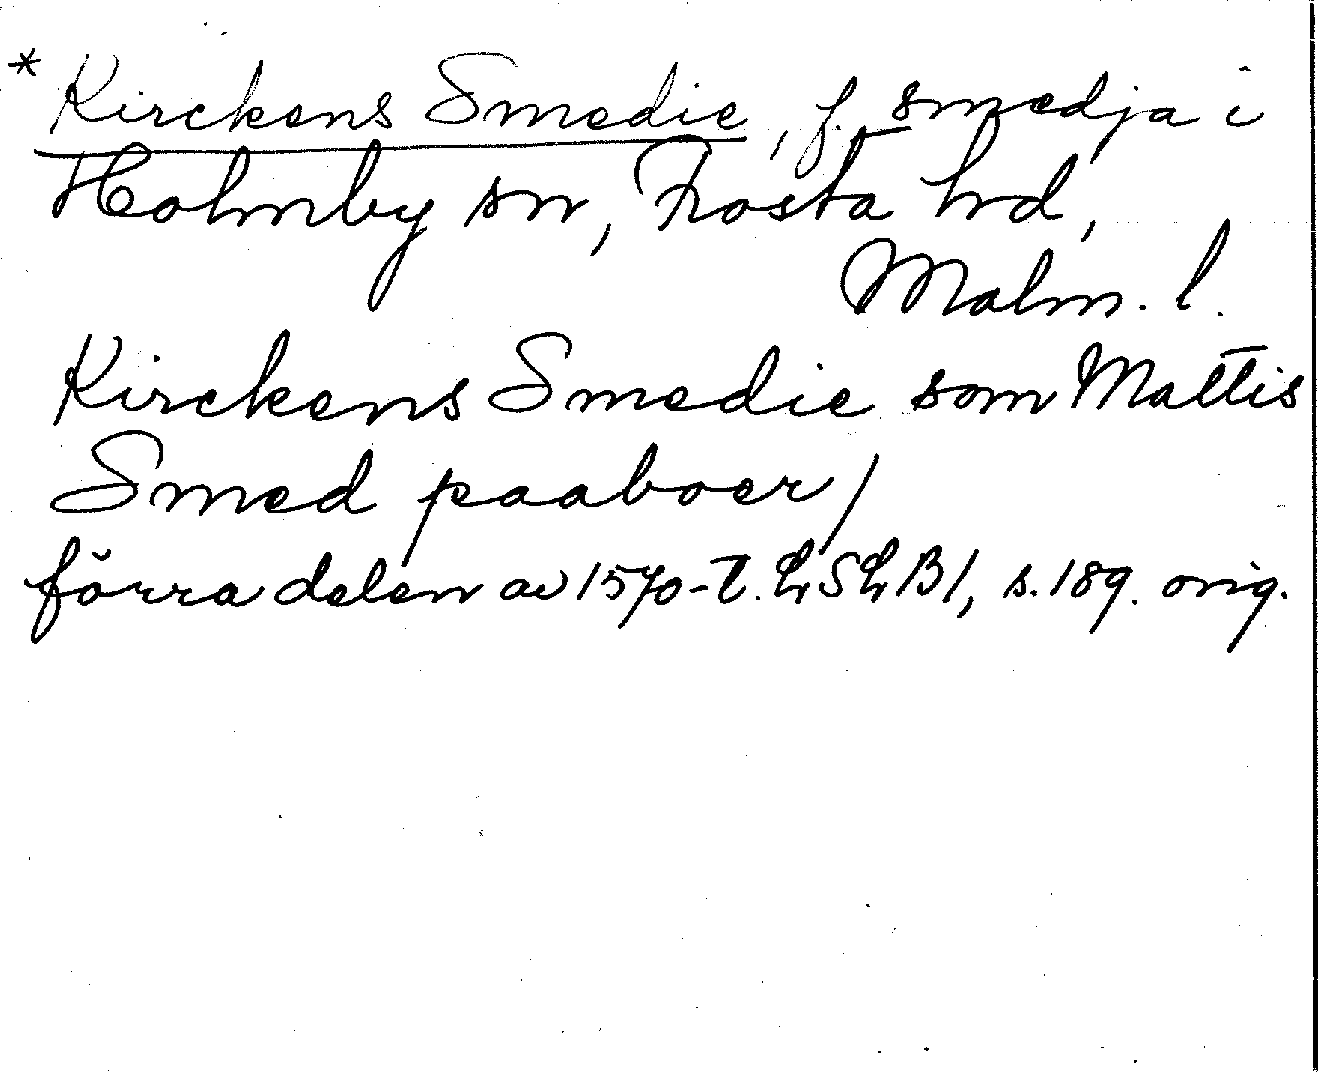 * Kirckens Smedie, f. smedja i
Holmby sn, Frosta hd,
Malm. l.
Kirckens Smedie som Mattis
Smed paaboer/
förra delen av 1570-t. LSLB1, s. 189. orig.